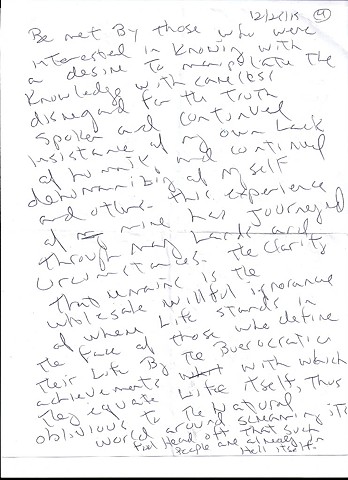 12/21/15 4
Be met By those who were
interested in Knowing with
a desire To manipulate the
Knowledge with careless
disregard for the Truth
Spoken and continued
Insistance of my own Lack
of humanity and continued
dehumanizing of myself
and others. This experience
of mine has Journeyed
through many Lands and
circumstances. The clarity
That remains is the
wholesale willful ignorance
of where Life stands in
the face of those who define
Their Life By The Buerocratic
achievements with which
They equate Life itself, Thus
oblivious to The Natural
world around screaming its
Head off that such
People are already in
Hell itself.